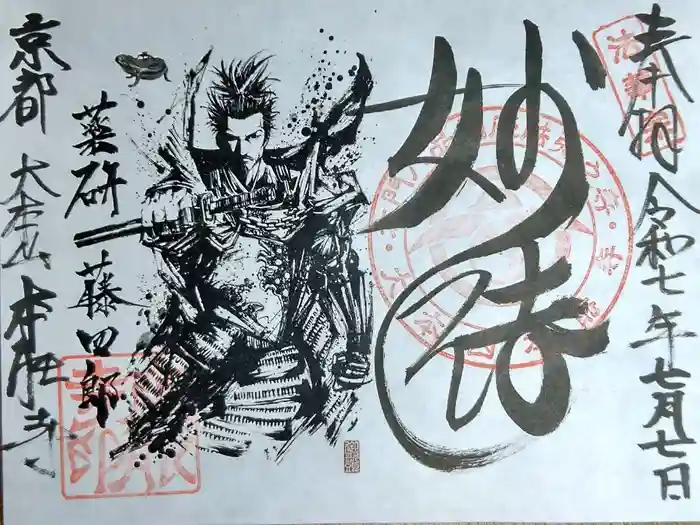 奉拝 令和七年七月七日
妙法
薬研 藤四郎
京都 大本山 本能寺